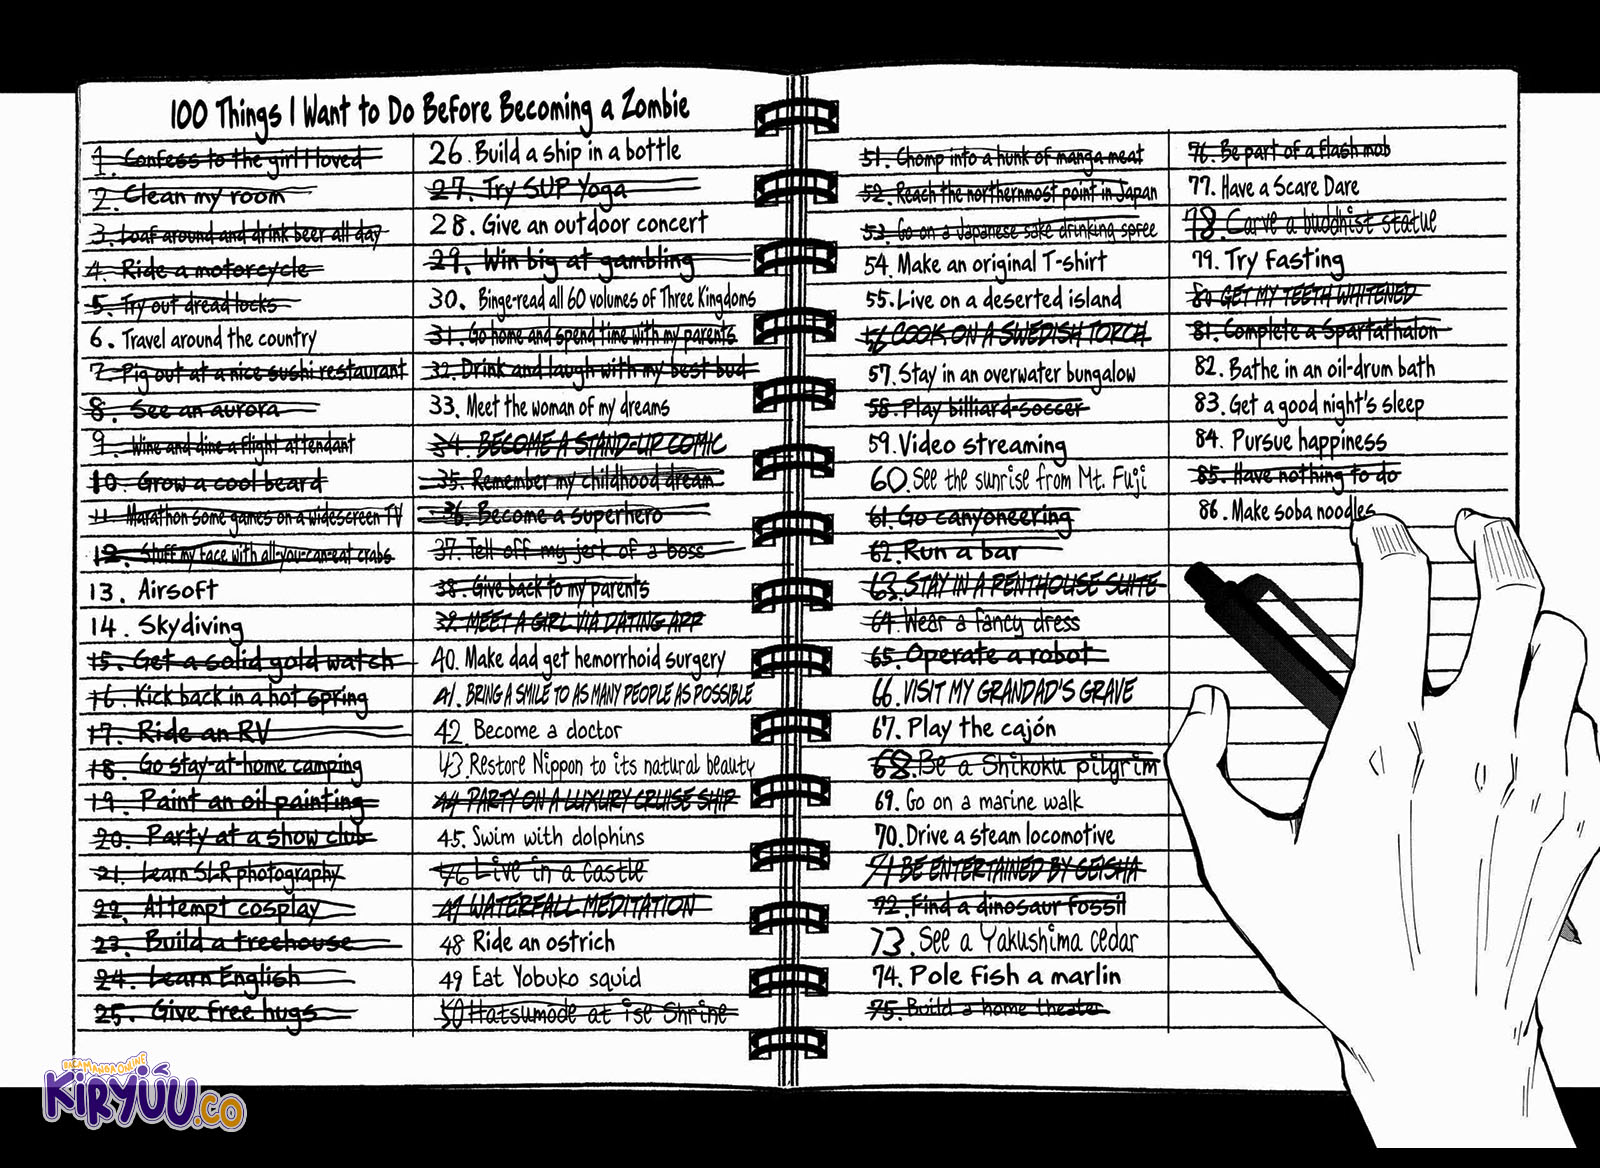 100 Things I Want to Do Before Becoming a Zombie
1. Confess to the girl I loved
2. Clean my room
3. Loaf around and drink beer all day
4. Ride a motorcycle
5. Try out dreadlocks
6. Travel around the country
7. Pig out at a nice sushi restaurant
8. See an aurora
9. Wine and dine a flight attendant
10. Grow a cool beard
11. Marathon some games on a widescreen TV
12. Stuff my face with all-you-can-eat crabs
13. Airsoft
14. Skydiving
15. Get a solid gold watch
16. Kick back in a hot spring
17. Ride an RV
18. Go stay-at-home camping
19. Paint an oil painting
20. Party at a show club
21. Learn SLR photography
22. Attempt cosplay
23. Build a treehouse
24. Learn English
25. Give free hugs
26. Build a ship in a bottle
27. Try SUP Yoga
28. Give an outdoor concert
29. Win big at gambling
30. Binge-read all 60 volumes of Three Kingdoms
31. Go home and spend time with my parents
32. Drink and laugh with my best bud
33. Meet the woman of my dreams
34. BECOME A STAND-UP COMIC
35. Remember my childhood dream
36. Become a superhero
37. Tell off my jerk of a boss
38. Give back to my parents
39. MEET A GIRL VIA DATING APP
40. Make dad get hemorrhoid surgery
41. BRING A SMILE TO AS MANY PEOPLE AS POSSIBLE
42. Become a doctor
43. Restore Nippon to its natural beauty
44 PARTY ON A LUXURY CRUISE SHIP
45. Swim with dolphins
46 Live in a castle
47 WATERFALL MEDITATION
48 Ride an ostrich
49 Eat Yobuko squid
50 Hatsumode at Ise Shrine
51. Chomp into a hunk of manga meat
52. Reach the northernmost point in Japan
53. Go on a Japanese sake drinking spree
54. Make an original T-shirt
55. Live on a deserted island
56 COOK ON A SWEDISH TORCH
57. Stay in an overwater bungalow
58. Play billiard-soccer
59. Video streaming
60. See the sunrise from Mt. Fuji
61. Go canyoneering
62. Run a bar
63. STAY IN A PENTHOUSE SUITE
64. Wear a fancy dress
65. Operate a robot
66. VISIT MY GRANDAD'S GRAVE
67. Play the cajón
68. Be a Shikoku pilgrim
69. Go on a marine walk
70. Drive a steam locomotive
71 BE ENTERTAINED BY GEISHA
72. Find a dinosaur fossil
73. See a Yakushima cedar
74. Pole fish a marlin
75. Build a home theater
76. Be part of a flash mob
77. Have a Scare Dare
78. Carve a buddhist statue
79. Try fasting
80 GET MY TEETH WHITENED
81. Complete a Spartathalon
82. Bathe in an oil-drum bath
83. Get a good night's sleep
84. Pursue happiness
85. Have nothing to do
86. Make soba noodles
BACA MANGA ONLINE
KIRYUU.CO